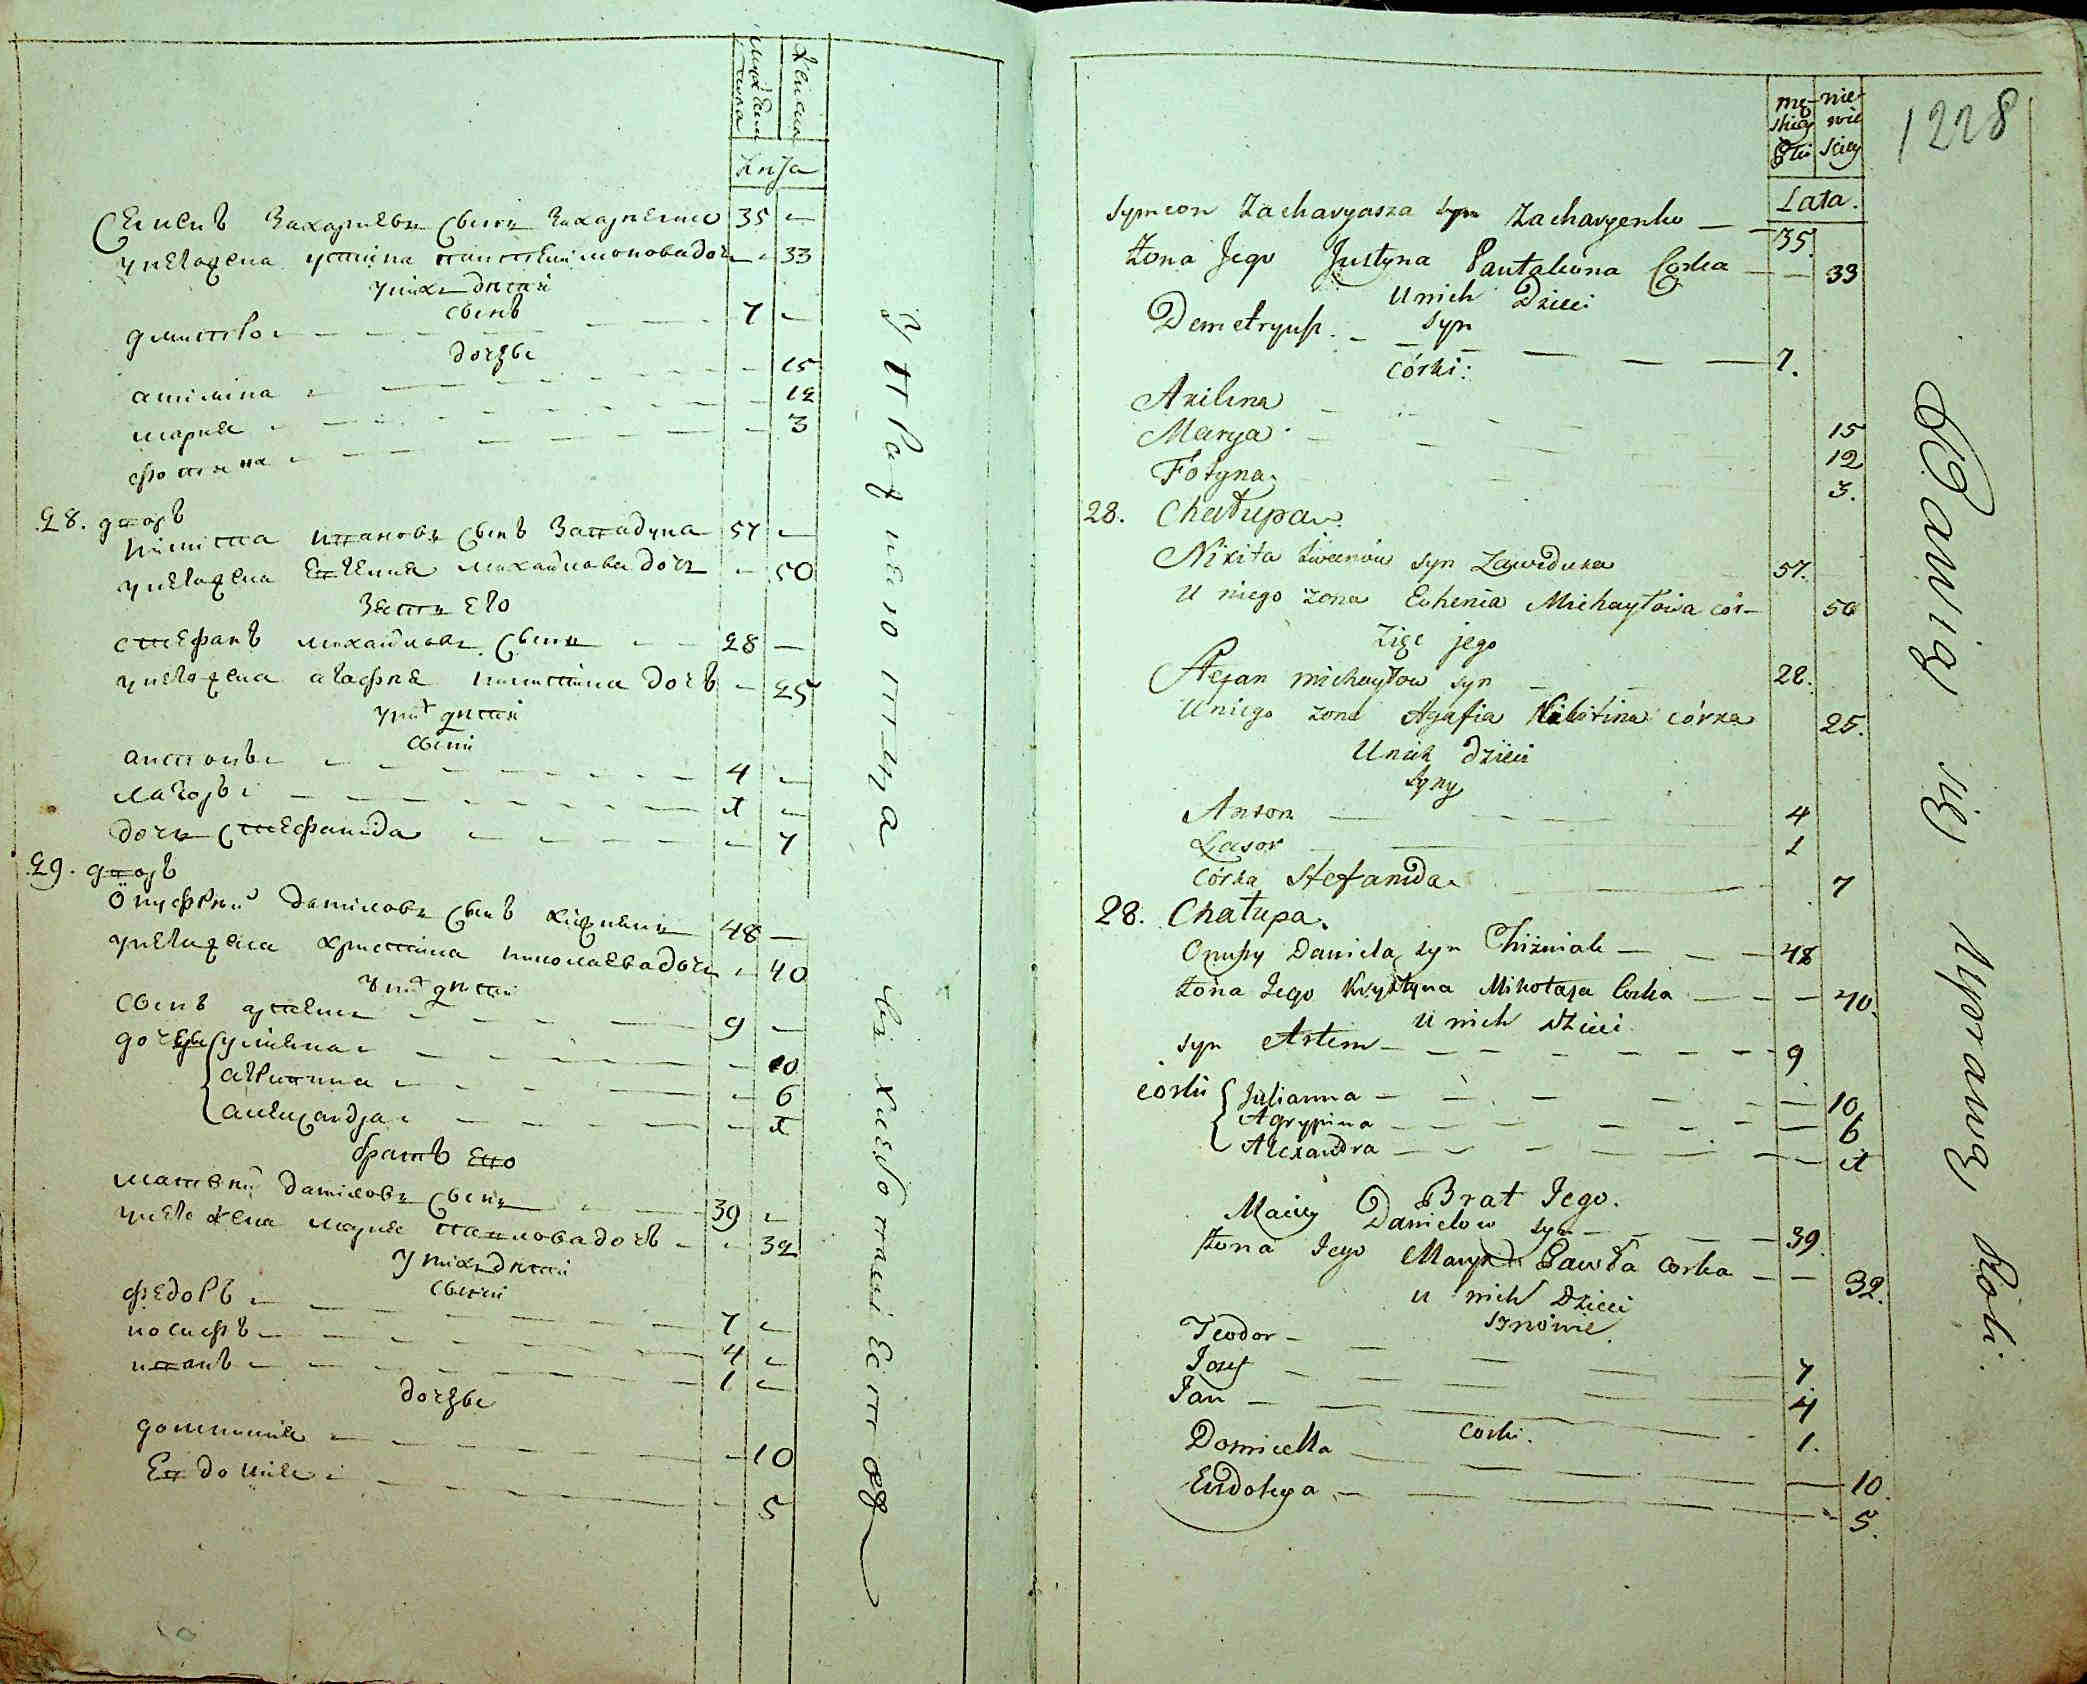 мужеска
женска
лѣта
Семенъ Захариевъ сынъ Захарченко 35
у него жена устина пантелимонова дочь 33
у нихъ дѣти
сынъ
дмитро 7
дочери
акилина 15
мария 12
фотина 3
28. дворъ
никита ивановъ сынъ Завадука 57
у него жена Евгения михайлова дочь 50
Зять его
стефанъ михайловъ сынъ 28
у него жена агафия никитина дочь 25
у них дѣти
сыни
антонъ 4
лазоръ 1
дочь Стефанида 7
29. дворъ
Онуфрий данилова сынъ хижнякъ 48
у него жена христина николаева дочь 40
у них дѣти
сынъ артемъ 9
дочери улияна 10
агрипина 6
александра 1
братъ Его
матвѣй даниловъ сынъ 39
у него жена мария павлова дочь 32
у нихъ дѣти
сыни
федоръ 7
иосифъ 4
иванъ 1
дочери
домникия 10
Евдокия 5
упражняютца въ хлебопашестве
1228
męskiey Płci
niewieściey
Lata.
Symeon Zacharyasza syn Zacharyenko 35.
Żona Jego Justyna Pantaleona Corka 33
U nich Dzieci
Syn
Demetryusz 7.
córki:
Akilina 15
Marya 12
Fotyna 3.
28. Chałupa
Nikita Iwanow syn Zawiduka 57.
U niego żona Euhenia Michayłowa cór- 50
Zięć jego
Stefan michayłow syn 28.
U niego żona Agafia Nikitina córka 25.
U nich dzieci
syny
Anton 4
Łasor 1
Córka Stefanida 7
28. Chałupa.
Onufry Daniela syn Chiżniak 48
Żona Jego Krystyna Mikołaja Corka 40.
U nich Dzieci
syn Artem 9
córki Julianna 10
Agrypina 6
Alexandra 1
Brat Jego.
Maciey Danielow syn 39.
Żona Jego Marya Pawła corka 32.
u nich Dzieci
Synowie
Teodor 7.
Jozef 4
Jan 1.
Corki.
Domicella 10.
Eudokya 5.
Bawią się Uprawą Roli.